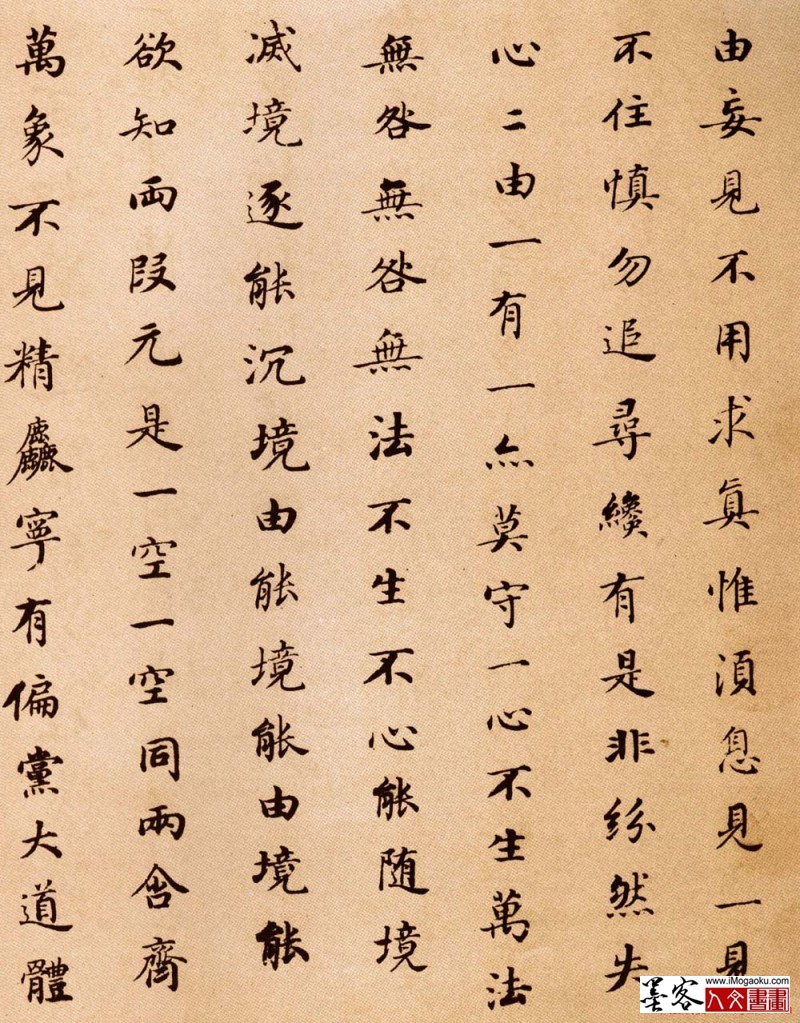 由妄見不用求眞惟湏息見一見
不住慎勿追尋纔有是非紛然失
心二由一有一亦莫守一心不生萬法
無咎無咎無法不生不心能随境
滅境逐能沉境由能境能由境能
欲知兩段元是一空一空同兩含齊
萬象不見精麤寧有偏黨大道體
www.iMogaoku.com
墨客人文書畫